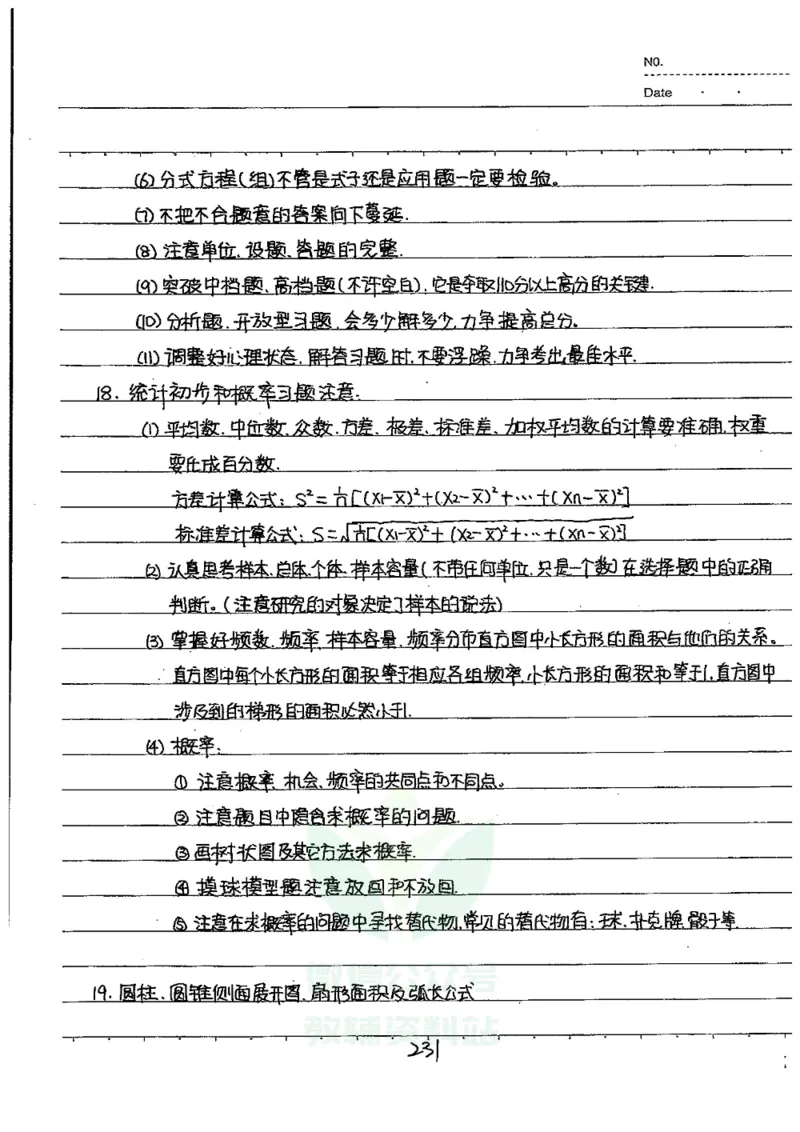 NO.
Date
(6) 分式方程(组)不管是式子还是应用题一定要检验。
(7) 不把不合题意的答案向下蔓延.
(8) 注意单位、设题、答题的完整.
(9) 突破中档题、高档题(不许空白),它是夺取110分以上高分的关键.
(10) 分析题、开放型习题,会多少解多少,力争提高总分。
(11) 调整好心理状态,解答习题时,不要浮躁,力争考出最佳水平.
18. 统计初步和概率习题注意.
(1) 平均数、中位数、众数、方差、极差、标准差、加权平均数的计算要准确,权重
要化成百分数.
方差计算公式: S²=1/n[(X1-X̄)²+(X2-X̄)²+···+(Xn-X̄)²]
标准差计算公式: S=√1/n[(X1-X̄)²+(X2-X̄)²+···+(Xn-X̄)²]
(2) 认真思考样本、总体、个体、样本容量(不带任何单位,只是一个数)在选择题中的正确
判断。(注意研究的对象决定了样本的说法)
(3) 掌握好频数、频率、样本容量、频率分布直方图中小长方形的面积与他们的关系。
直方图中每个小长方形的面积等于相应各组频率,小长方形的面积和等于1,直方图中
涉及到的梯形的面积必然小于1.
(4) 概率:
① 注意概率、机会、频率的共同点和不同点。
② 注意题目中隐含求概率的问题.
③ 画树状图及其它方法求概率.
④ 摸球模型题注意放回和不放回.
⑤ 注意在求概率的问题中寻找替代物,常见的替代物有:球、扑克牌、骰子等.
19. 圆柱、圆锥侧面展开图、扇形面积及弧长公式
微信公众号
教辅资料站
231